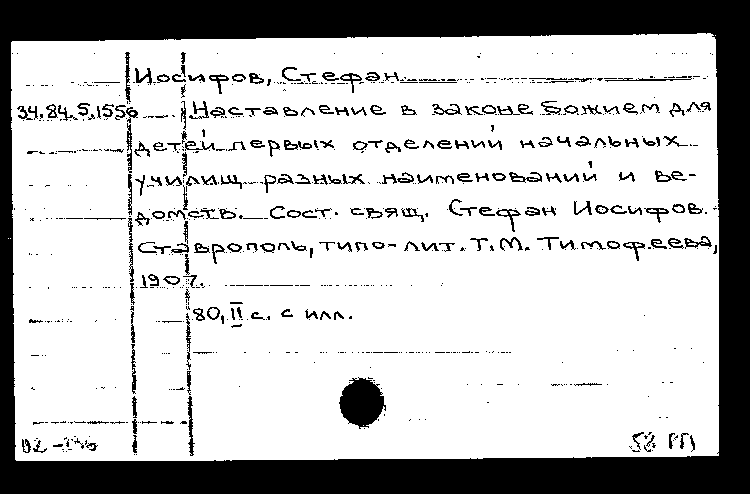 Иосифов, Стефан
34.84.5.1556 Наставление в законе Божием для
детей первых отделений начальных
училищ разных наименований и ве-
домств. Сост. свящ. Стефан Иосифов.
Ставрополь, типо-лит. Т.М. Тимофеева,
1907.
80, II с. с илл.